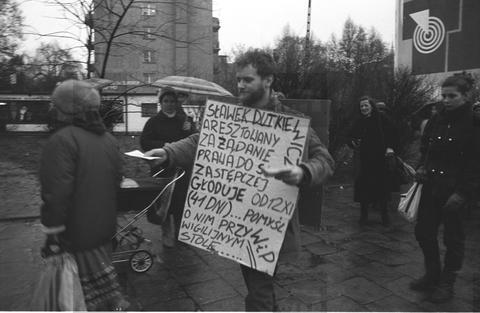 SŁAWEK DUTKIEWICZ
ARESZTOWANY
ZA ŻĄDANIE
PRAWA DO S
ZASTĘPCZEJ
GŁODUJE OD 12 XI
(41 DNI)... POMYŚL
O NIM PRZY
WIGILIJNYM
STOLE...